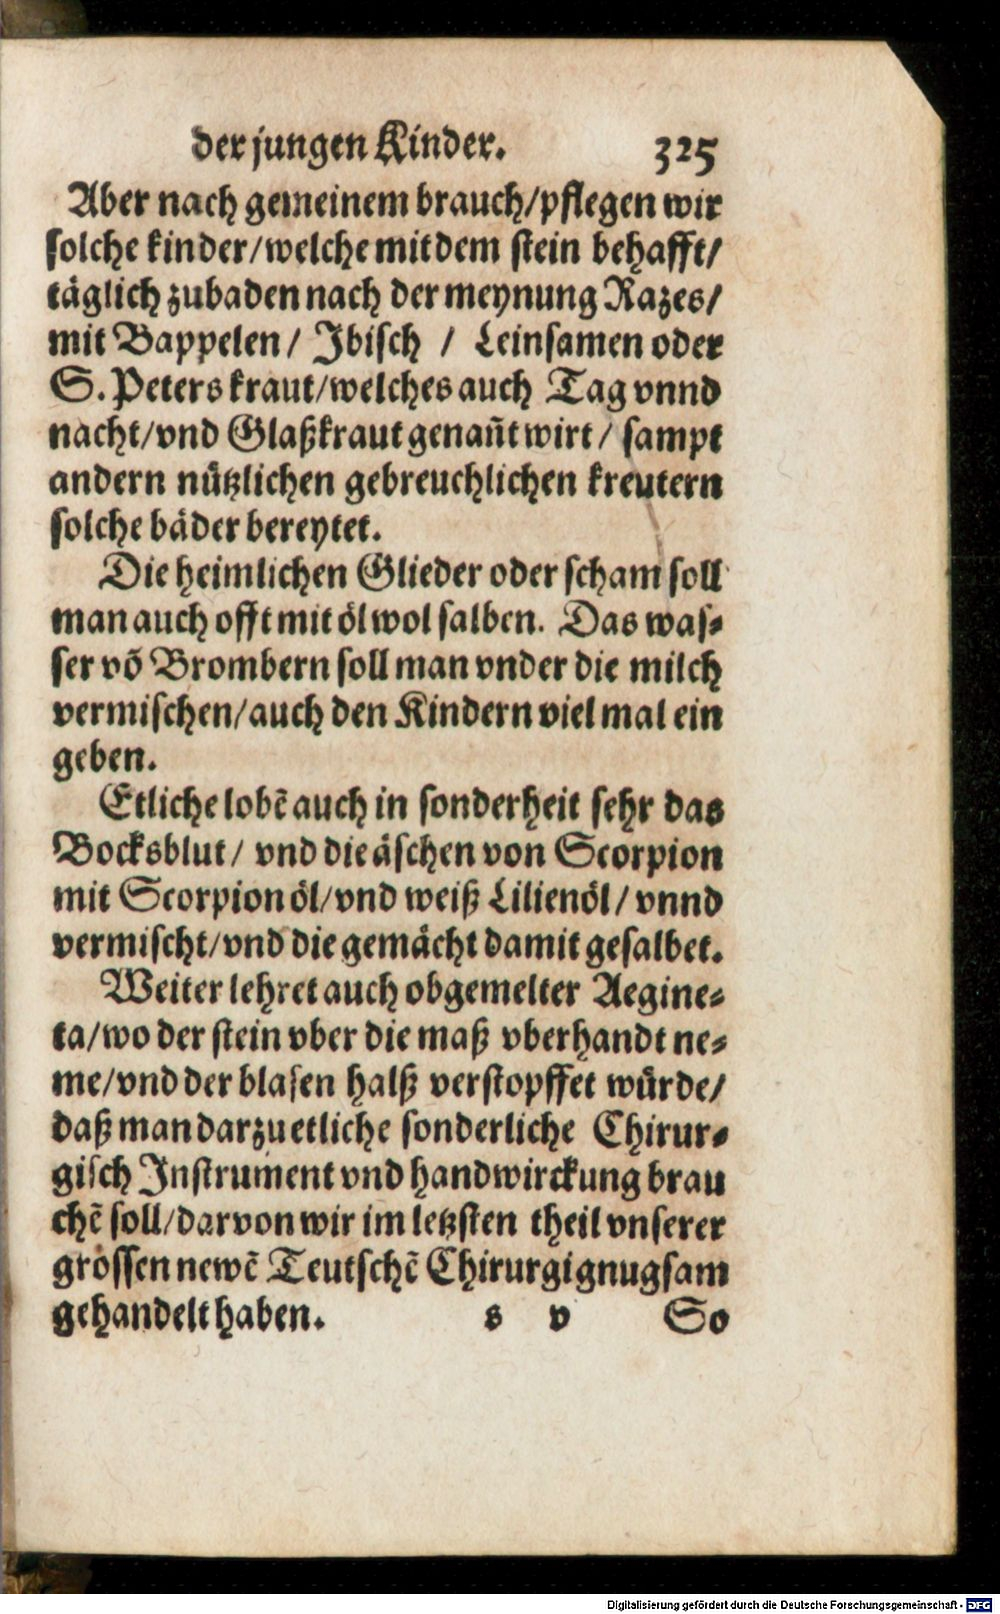 der jungen Kinder. 325
Aber nach gemeinem brauch/pflegen wir
solche kinder/welche mit dem stein behafft/
täglich zubaden nach der meynung Razes/
mit Bappelen/ Jbisch / Leinsamen oder
S. Peters kraut/welches auch Tag vnnd
nacht/vnd Glaßkraut genañt wirt/ sampt
andern nützlichen gebreuchlichen kreutern
solche bäder bereytet.
Die heimlichen Glieder oder scham soll
man auch offt mit öl wol salben. Das was⸗
ser võ Brombern soll man vnder die milch
vermischen/auch den Kindern viel mal ein
geben.
Etliche lobẽ auch in sonderheit sehr das
Bocksblut/ vnd die äschen von Scorpion
mit Scorpion öl/vnd weiß Lilienöl/ vnnd
vermischt/vnd die gemächt damit gesalbet.
Weiter lehret auch obgemelter Aegine⸗
ta/wo der stein vber die maß vberhandt ne⸗
me/vnd der blasen halß verstopffet würde/
daß man darzu etliche sonderliche Chirur⸗
gisch Instrument vnd handwirckung brau
chẽ soll/darvon wir im letzsten theil vnserer
grossen newẽ Teutschẽ Chirurgi gnugsam
gehandelt haben. s v So
Digitalisierung gefördert durch die Deutsche Forschungsgemeinschaft - DFG